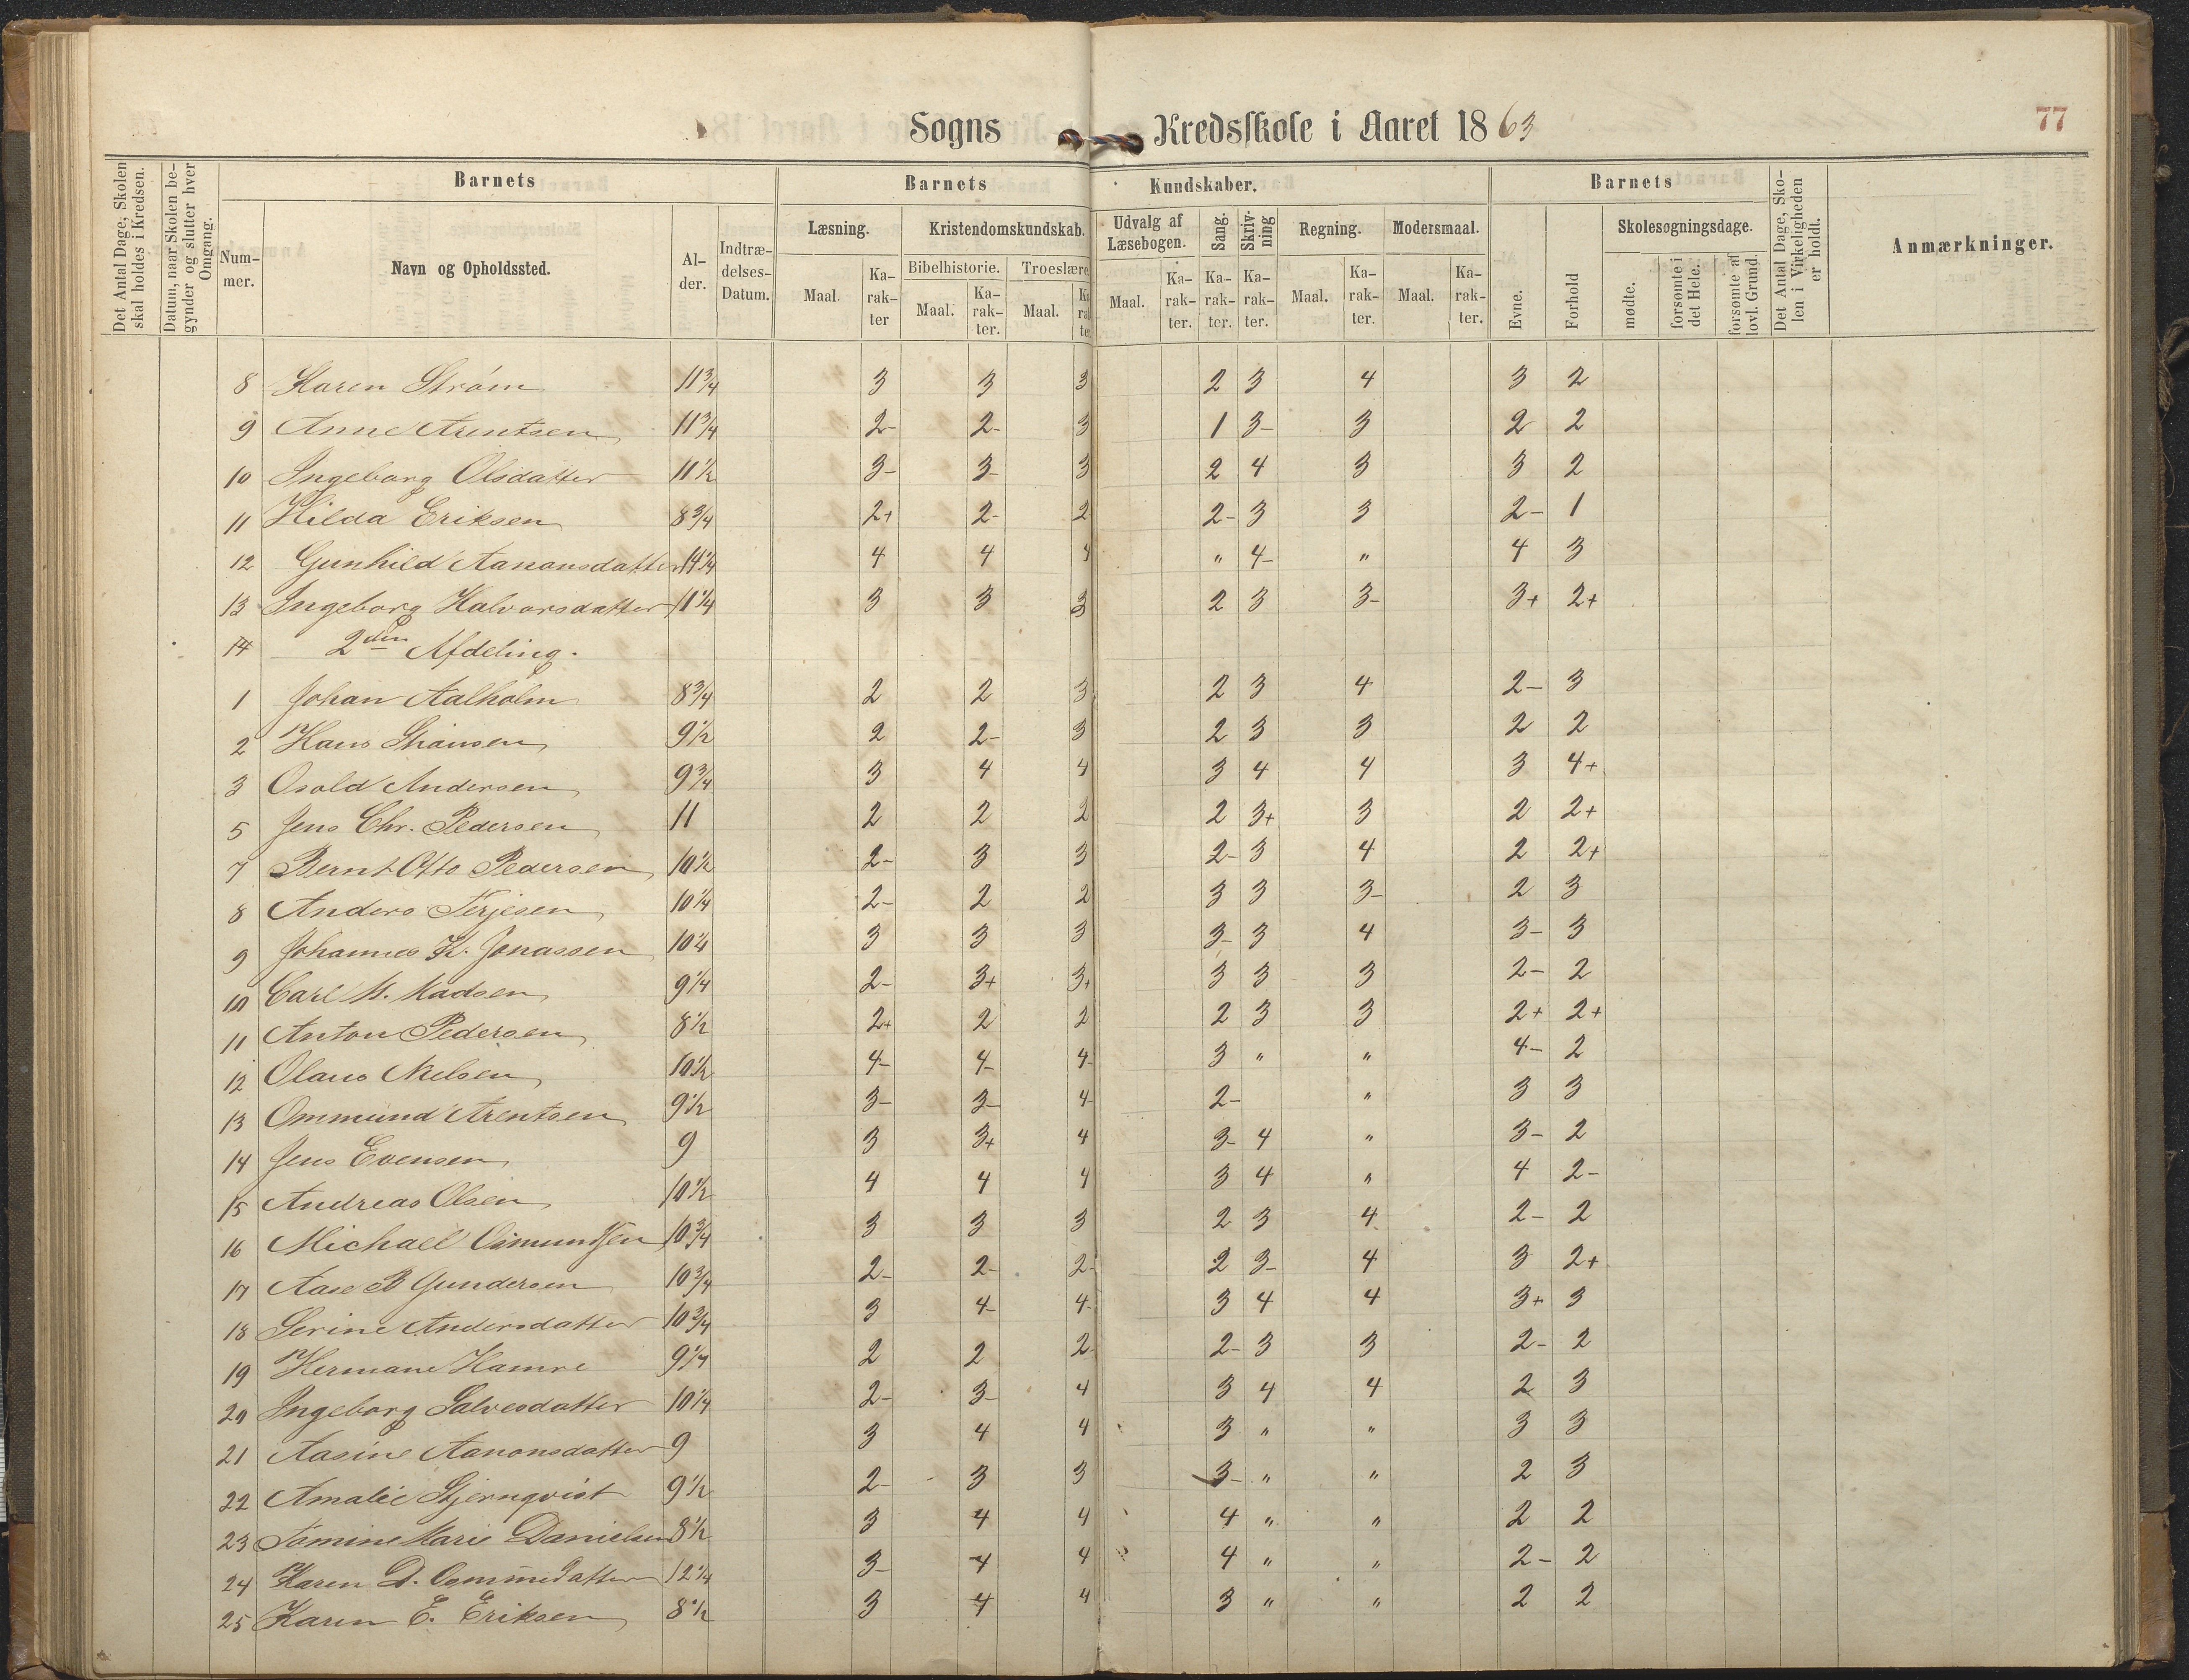 Sogns Kredsskole i Aaret 1863
77
Det Antal Dage, Skolen skal holdes i Kredsen.
Datum, naar Skolen begynder og slutter hver Omgang.
Barnets
Nummer.
Navn og Opholdssted.
Alder.
Indtrædelses-Datum.
Barnets Kundskaber.
Læsning.
Maal.
Karakter
Kristendomskundskab.
Bibelhistorie.
Maal.
Karakter.
Troeslære
Maal.
Udvalg af Læsebogen.
Maal.
Karakter.
Sang.
Karakter.
Skrivning
Karakter.
Regning.
Maal.
Karakter.
Modersmaal.
Maal.
Karakter.
Barnets
Evne.
Forhold
Skolesøgningsdage.
mødte.
forsømte i det Hele.
forsømte af lovl. Grund.
Det Antal Dage, Skolen i Virkeligheden er holdt.
Anmærkninger.
8 Karen Strøm 11 3/4 3 3 3 2 3 4 3 2
9 Anne Arentsen 11 3/4 2- 2- 3 1 3- 3 2 2
10 Ingeborg Olsdatter 11 1/2 3- 3- 3 2 4 3 3 2
11 Hilda Eriksen 8 3/4 2+ 2- 2 2- 3 3 2- 1
12 Gunhild Aanonsdatter 14 1/4 4 4 4 " 4- " 4 3
13 Ingeborg Halvorsdatter 11 1/4 3 3 3 2 3 3- 3+ 2+
14 2den Afdeling.
1 Johan Aalholm 8 3/4 2 2 3 2 3 4 2- 3
2 Hans 9 1/2 2 2- 3 2 3 3 2 2
3 Osold Andersen 9 3/4 3 4 4 3 4 4 3 4+
5 Jens Chr. Pedersen 11 2 2 2 2 3+ 3 2 2+
7 Bernt Otto Pedersen 10 1/2 2- 3 3 2- 3 4 2 2+
8 Anders Terjesen 10 1/4 2- 2 2 3 3 3- 2 3
9 Johannes K. Jonassen 10 1/4 3 3 3 3- 3 4 3- 3
10 Carl M. Madsen 9 1/4 2- 3+ 3+ 3 3 3 2- 2
11 Anton Pedersen 8 1/2 2+ 2 2 2 3 3 2+ 2+
12 Olaus Nielsen 10 1/2 4- 4- 4- 3 " " 4- 2
13 Ommund Arentsen 9 1/2 3- 3- 4- 2- " 3 3
14 Jens Evensen 9 3 3+ 4 3- 4 " 3- 2
15 Andreas Olsen 10 1/2 4 4 4 3 4 " 4 2-
16 Michael Osmundsen 10 3/4 3 3 3 2 3 4 2- 2
17 Aase B Gundersen 10 3/4 2- 2- 2- 2 3- 4 3 2+
18 Serine Andersdatter 10 3/4 3 4- 4- 3 4 4 3+ 3
19 Hermane Hamre 9 1/4 2 2 2- 2- 3 3 2- 2
20 Ingeborg Salvesdatter 10 1/4 2- 3- 4 3 4 4 2 3
21 Aasine Aanonsdatter 9 3 4 4 3 " " 3 3
22 Amalie Stjernqvist 9 1/2 2- 3 3 3- " " 2 3
23 Tomine Marie Danielsen 8 1/2 3 4 4 4 " " 2 2
24 Karen D. 12 1/4 3- 4 4 4 " " 2- 2
25 Karen E. Eriksen 8 1/2 3 4 4 3 " " 2 2